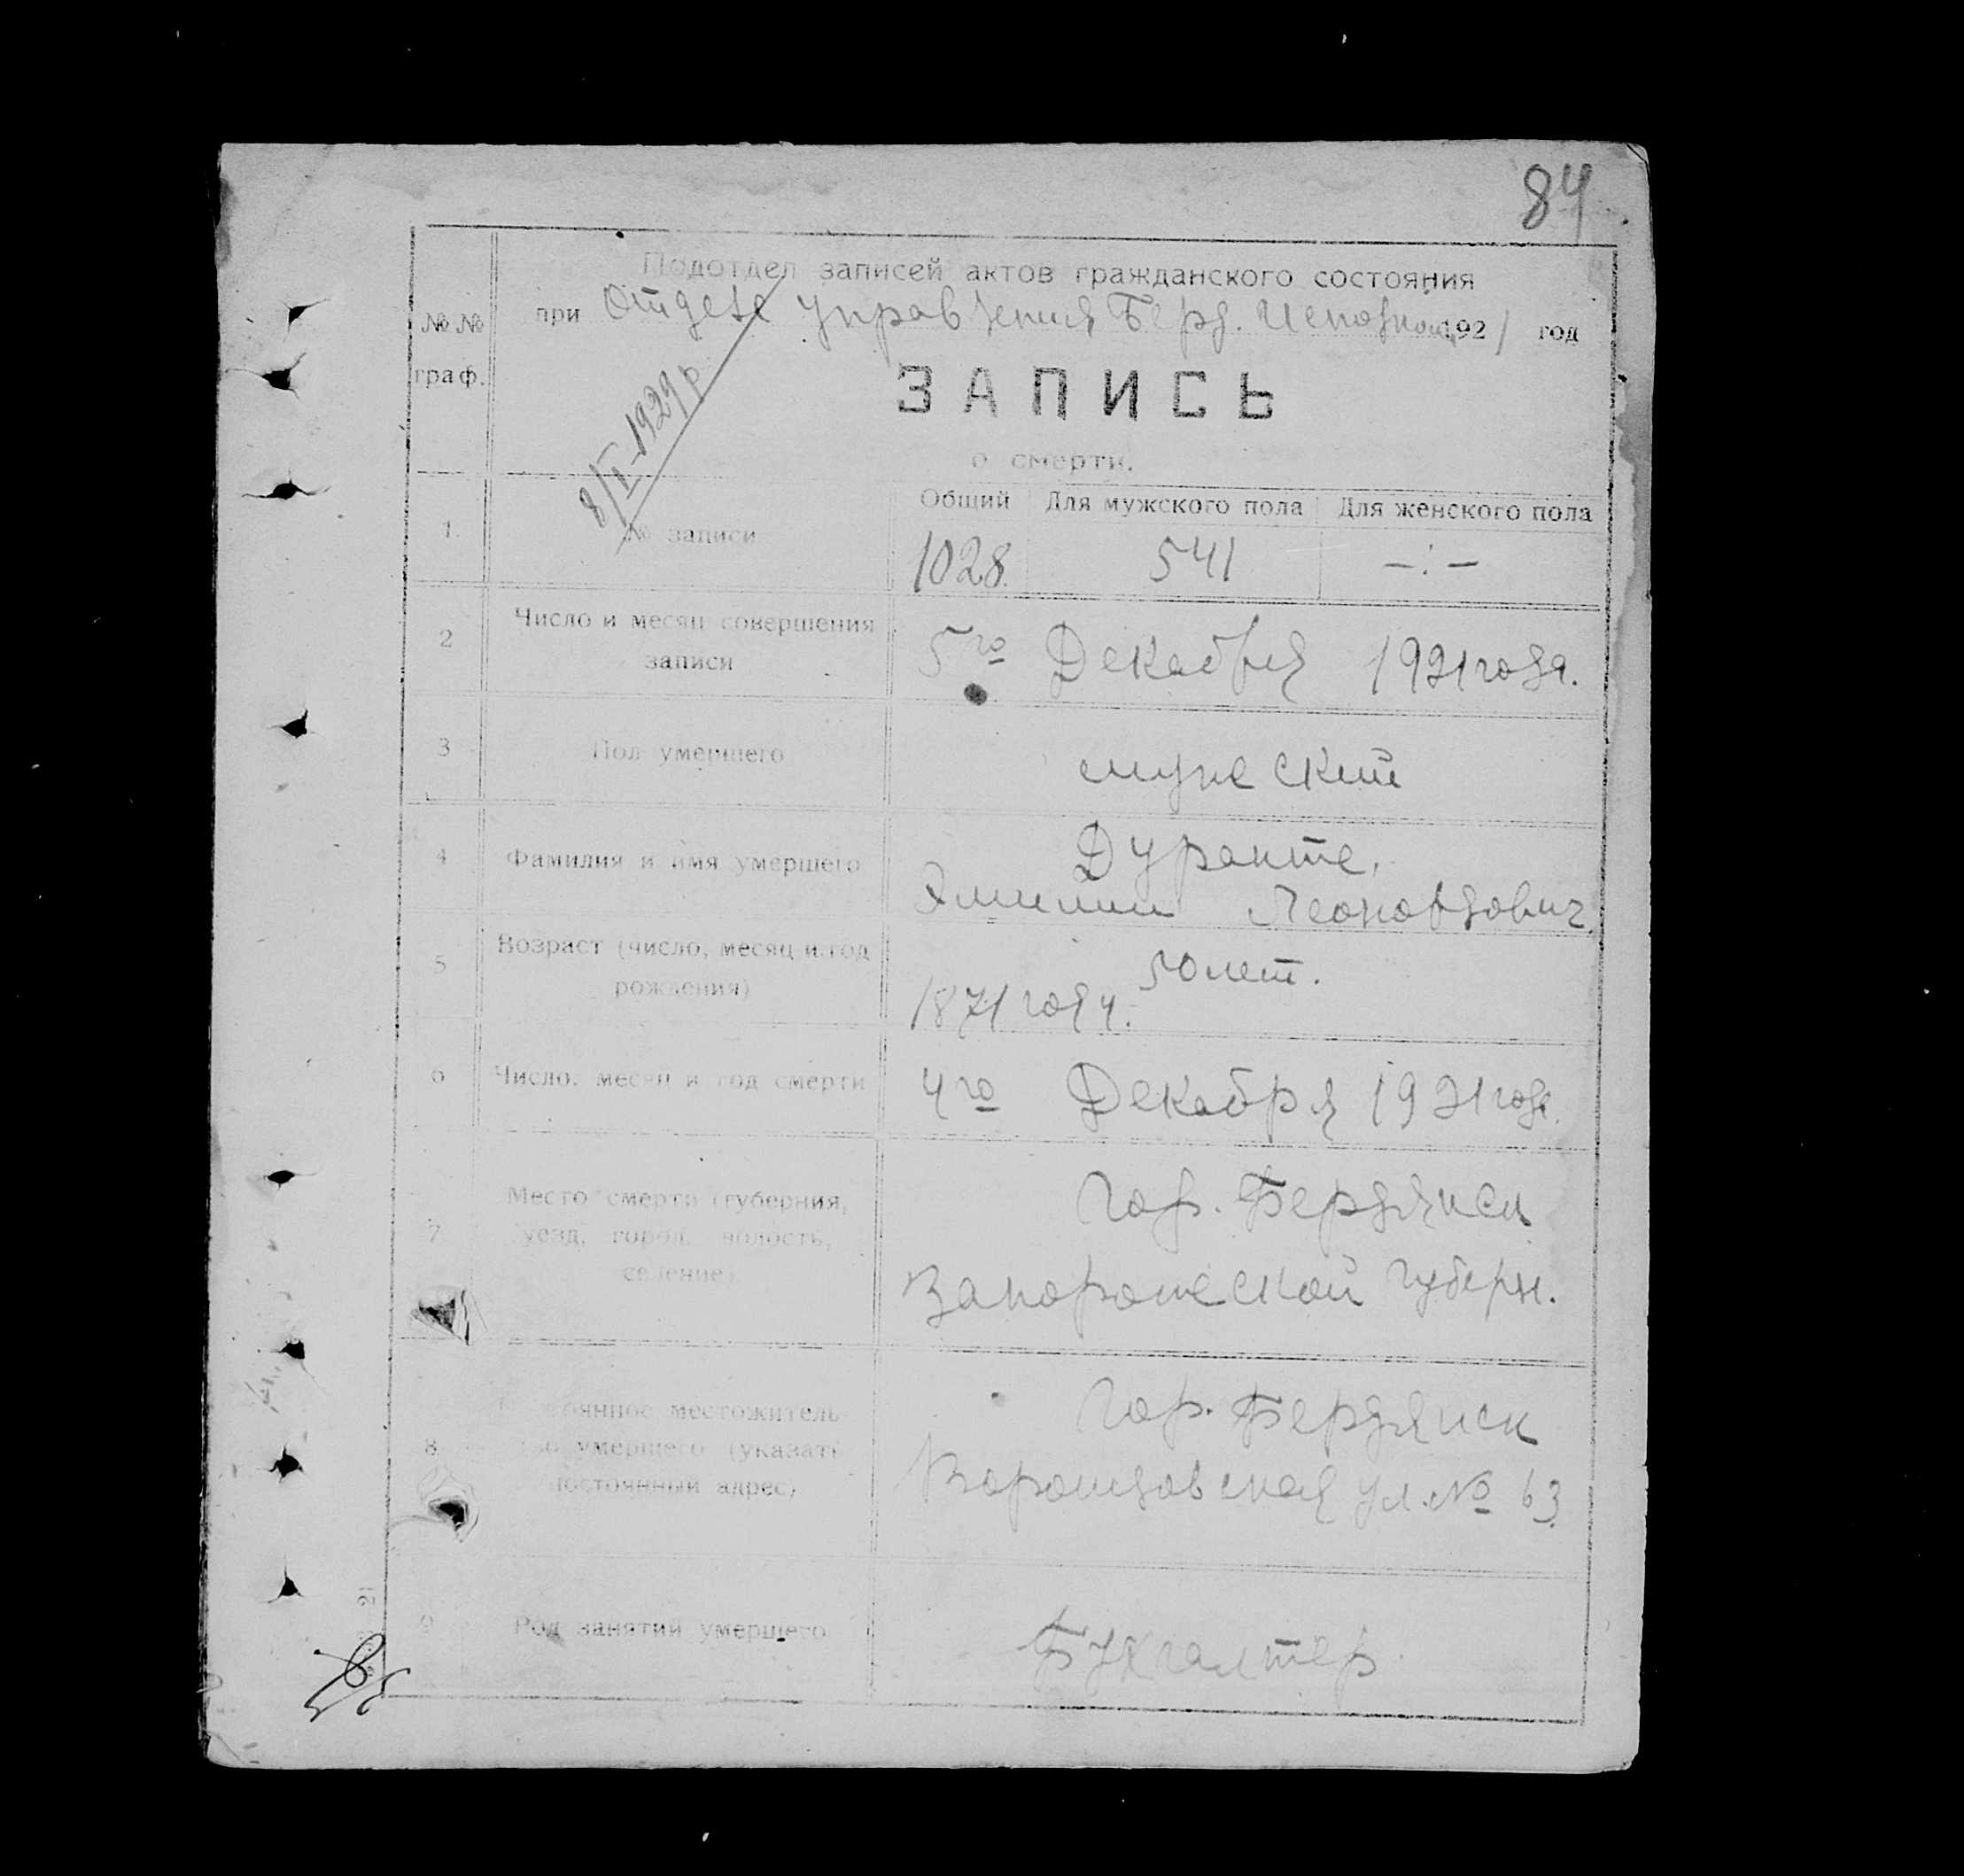 84
Подотдел записей актов гражданского состояния
при Отделе Управления Берд. Исполком 1921 год
№№ граф.
8/I-1929 р.
ЗАПИСЬ
о смерти.
Общий Для мужского пола Для женского пола
1. № записи 1028. 541 —:—
2 Число и месяц совершения записи 5го Декабря 1921 года.
3 Пол умершего мужеский
4 Фамилия и имя умершего Дуранте,
Эмилий Леонардович.
5 Возраст (число, месяц и год рождения) 50 лет.
1871 года.
6 Число, месяц и год смерти 4го Декабря 1921 года.
7 Место смерти (губерния, уезд, город, волость, селение) Гор. Бердянск
Запорожеской губерн.
8 Постоянное местожительство умершего (указать постоянный адрес) Гор. Бердянск
Воронцовская ул. № 63
9 Род занятий умершего Бухгалтер.